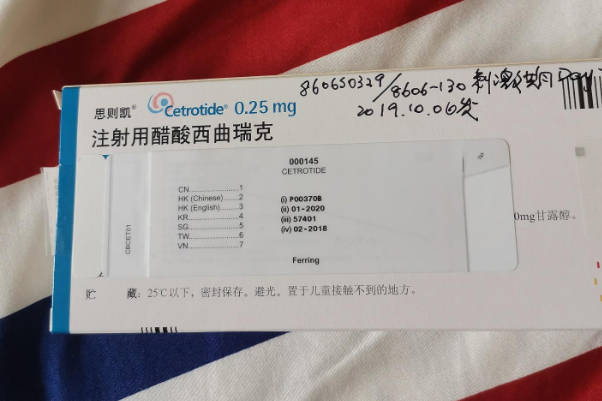 860650329/8606-130 刺激周期 Day
2019.10.06发
思则凯® Cetrotide® 0.25 mg
注射用醋酸西曲瑞克
000145
CETROTIDE
CN....................1
HK (Chinese).....2
HK (English)......3
KR....................4
SG....................5
TW....................6
VN....................7
(i) P00370B
(ii) 01-2020
(iii) 57401
(iv) 02-2018
Ferring
CBCET01
0mg甘露醇。
贮 藏：25℃以下，密封保存。避光。置于儿童接触不到的地方。